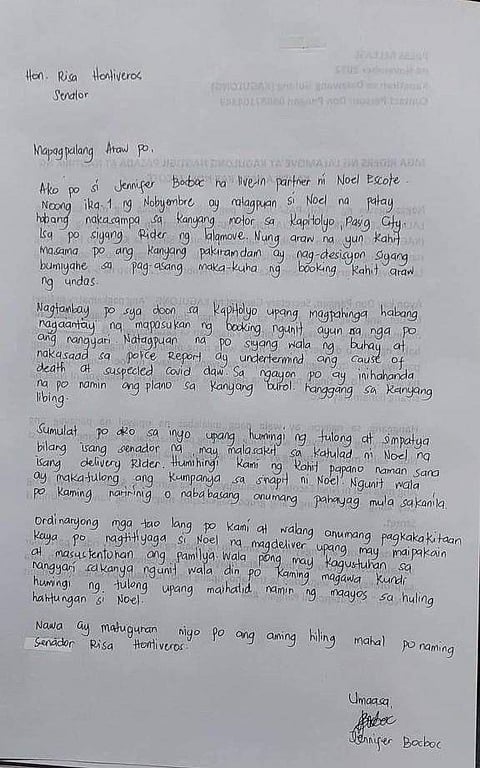 Hon. Risa Hontiveros
Senator
Mapagpalang Araw po,
Ako po si Jennifer Bocboc na live-in partner ni Noel Escote.
Noong ika 1 ng Nobyembre ay natagpuan si Noel na patay
habang nakasampa sa kanyang motor sa kapitolyo, Pasig City.
Isa po siyang Rider ng lalamove. Nung araw na yun kahit
masama po ang kanyang pakiramdam ay nag-desisyon siyang
bumiyahe sa pag-asang maka-kuha ng booking kahit araw
ng undas.
Nagtanbay po sya doon sa kapitolyo upang magpahinga habang
nagaantay na mapasukan ng booking ngunit ayun na nga po
ang nangyari. Natagpuan na po siyang wala ng buhay at
nakasaad sa police Report ay undertermind ang cause of
death at suspected covid daw. Sa ngayon po ay inihahanda
na po namin ang plano sa kanyang burol hanggang sa kanyang
libing.
Sumulat po ako sa inyo upang humingi ng tulong at simpatya
bilang isang senador na may malasakit sa katulad ni Noel na
isang delivery Rider. Humihingi kami ng kahit papano naman sana
ay makatulong ang kumpanya sa sinapit ni Noel. Ngunit wala
po kaming naririnig o nababasang anumang pahayag mula sakanila.
Ordinaryong mga tao lang po kami at walang anumang pagkakakitaan
kaya po nagtitiyaga si Noel na magdeliver upang may maipakain
at masustentuhan ang pamilya. Wala pong may kagustuhan sa
nangyari sakanya ngunit wala din po kaming magawa kundi
humingi ng tulong upang maihatid namin ng maayos sa huling
hantungan si Noel.
Nawa ay matugunan niyo po ang aming hiling mahal po naming
Senador Risa Hontiveros.
Umaasa,
Jennifer Bocboc